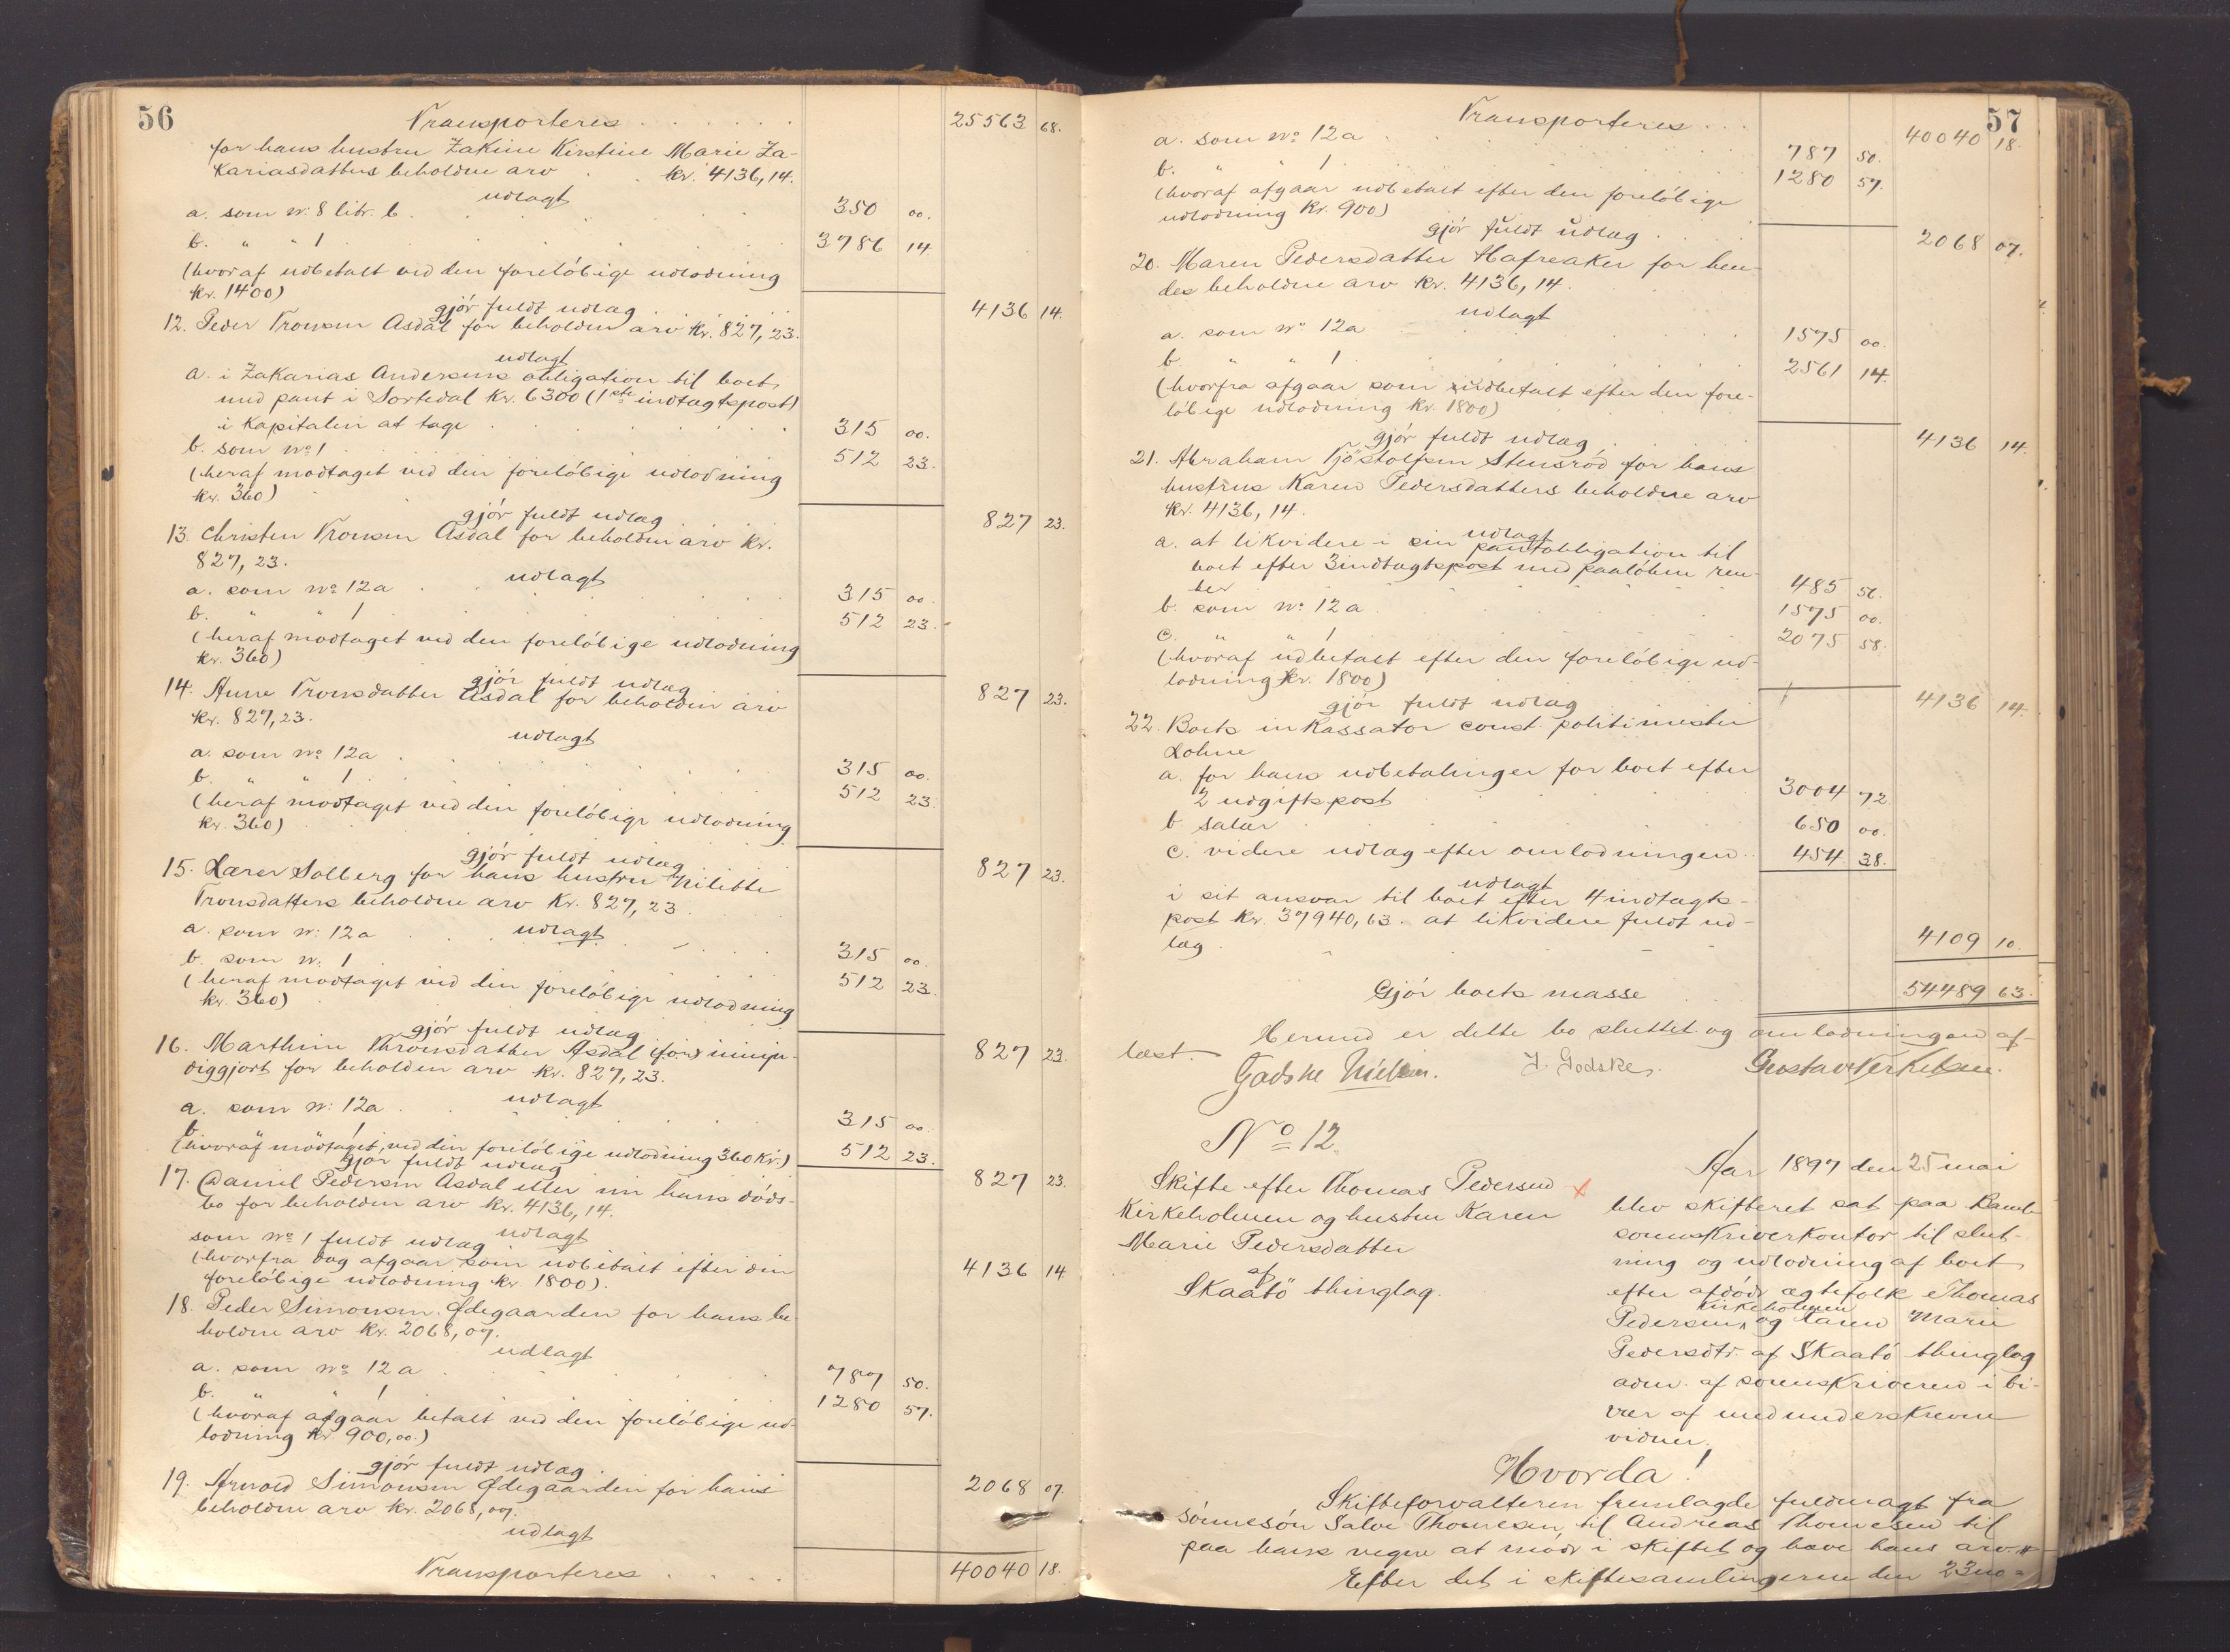 56
Transporteres 25563 68.
for hans hustru Zakine Kirstine Marie Za-
kariasdatters beholdne arv kr. 4136,14.
udlagt
a. som No. 8 litr. b. 350 00.
b. " " 1 3786 14.
(hvoraf udbetalt ved den foreløbige udlodning
kr. 1400)
gjør fuldt udlæg 4136 14.
12. Peder Tronsen Asdal for beholden arv kr. 827,23.
udlagt
a. i Zakarias Andersens obligation til boet
med pant i Sortedal kr. 6300 (1ste indtægtspost)
i kapitalen at tage 315 00.
b. som No 1 512 23.
(heraf modtaget ved den foreløbige udlodning
kr. 360)
gjør fuldt udlæg 827 23.
13. Christen Tronsen Asdal for beholden arv kr.
827,23.
udlagt
a. som No 12a 315 00.
b. " " 1 512 23.
(heraf modtaget ved den foreløbige udlodning
kr. 360)
gjør fuldt udlæg 827 23.
14. Anne Tronsdatter Asdal for beholden arv
kr. 827,23.
udlagt
a. som No 12a 315 00.
b. " " 1 512 23.
(heraf modtaget ved den foreløbige udlodning
kr. 360)
gjør fuldt udlæg 827 23.
15. Lærer Solberg for hans hustru Nilitte
Tronsdatters beholdne arv kr. 827,23.
udlagt
a. som No. 12a 315 00.
b. som No. 1 512 23.
(heraf modtaget ved den foreløbige udlodning
kr. 360)
gjør fuldt udlæg 827 23.
16. Marthine Thronsdatter Asdal (for) umyn-
diggjort for beholden arv kr. 827,23.
udlagt
a. som No. 12a 315 00.
b. " " 1 512 23.
(hvoraf modtaget ved den foreløbige udlodning 360 kr.)
gjør fuldt udlæg 827 23.
17. Daniel Pedersen Asdal eller nu hans døds-
bo for beholden arv kr. 4136,14.
udlagt
som No 1 fuldt udlæg 4136 14
(hvorfra dog afgaar som udbetalt efter den
foreløbige udlodning kr. 1800).
18. Peder Simonsen Ødegaarden for hans be-
holdne arv kr. 2068,07.
udlagt
a. som No 12a 787 50.
b. " " 1 1280 57.
(hvoraf afgaar betalt ved den foreløbige ud-
lodning kr. 900,00.)
gjør fuldt udlæg. 2068 07.
19. Arnold Simonsen Ødegaarden for hans
beholdne arv kr. 2068,07.
udlagt
Transporteres 40040 18.
57
Transporteres 40040 18.
a. som No 12a 787 50.
b. " " 1 1280 57.
(hvoraf afgaar udbetalt efter den foreløbige
udlodning kr. 900)
gjør fuldt udlæg 2068 07.
20. Maren Pedersdatter Hafreaker for hen-
des beholdne arv kr. 4136,14.
udlagt
a. som No 12a 1575 00.
b. " " 1 2561 14.
(hvorfra afgaar som udbetalt efter den fore-
løbige udlodning kr. 1800)
gjør fuldt udlæg 4136 14.
21. Abraham Tjøstolfsen Stensrød for hans
hustrus Karen Pedersdatters beholdne arv
kr. 4136,14.
udlagt
a. at likvidere i sin pantobligation til
boet efter 3 indtægtspost med paaløbne ren-
ter 485 56.
b. som No. 12a 1575 00.
c. " " 1 2075 58.
(hvoraf udbetalt efter den foreløbige ud-
lodning kr. 1800)
gjør fuldt udlæg 4136 14.
22. Boets inkassator const. politimester
Lohne
a. for hans udbetalinger for boet efter
2 udgiftspost 3004 72
b. salær 650 00.
c. videre udlæg efter omlodningen 454 38.
udlagt
i sit ansvar til boet efter 4 indtægts-
post kr. 37940,63. at likvidere fuldt ud-
læg. 4109 10.
Gjør boets masse 54489 63.
Hermed er dette bo sluttet og omlodningen af-
læst.
Godske Nielsen. J. Godske. Gustav Terkelsen.
No 12.
Skifte efter Thomas Pedersen x
Kirkeholmen og hustru Karen
Marie Pedersdatter
af
Skaatø thinglag.
Aar 1897 den 25 mai
blev skifteret sat paa Bamle
sorenskriverkontor til slut-
ning og udlodning af boet
efter afdøde ægtefolk Thomas
Kirkeholmen
Pedersen og Karen Marie
Pedersdtr. af Skaatø thinglag
adm. af sorenskriveren i bi-
vær af medunderskrevne
vidner.
Hvorda!
Skifteforvalteren fremlagde fuldmagt fra
sønnesøn Salve Thomesen til Andreas Thomesen til
paa hans vegne at møde i skiftet og hæve hans arv. #
Efter det i skiftesamlingerne den 23 no=